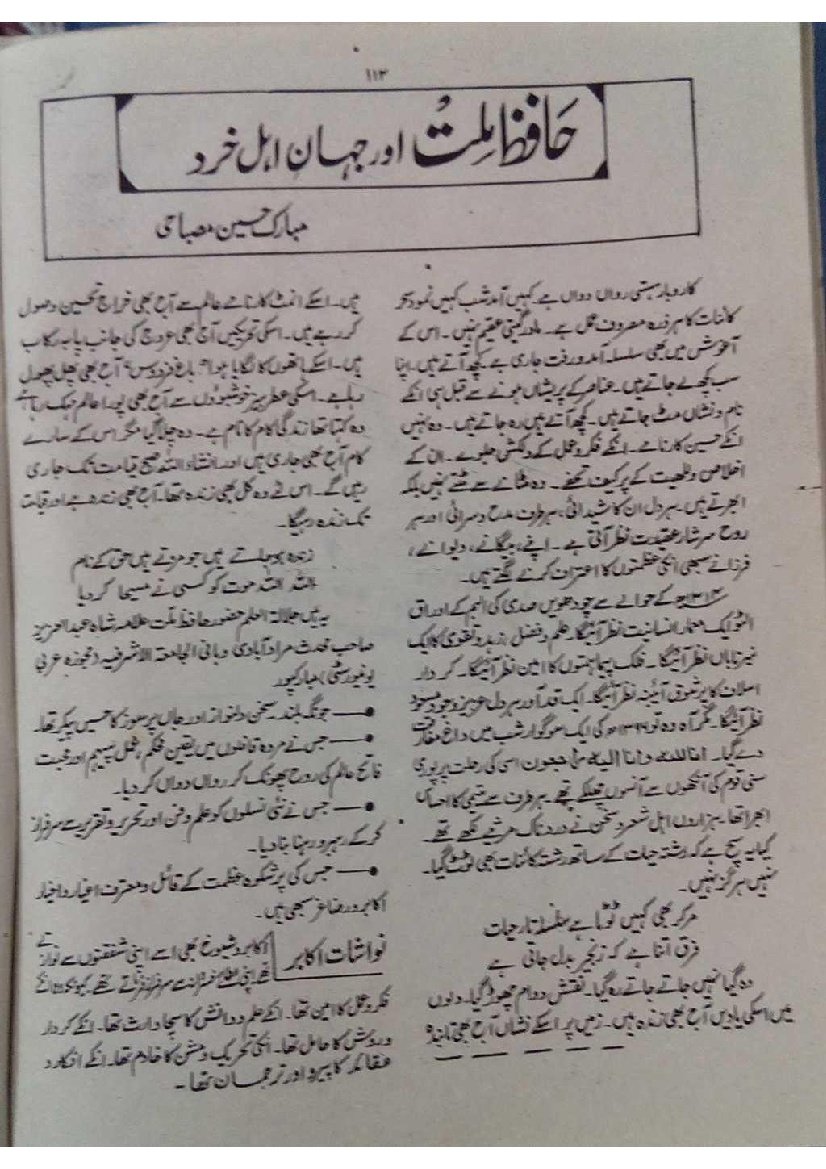 ۱۱۳
حافظ ملت اور جہان اہل خرد
مبارک حسین مصباحی
کاروبار ہستی رواں دواں ہے کہیں آمد شب کہیں نمود سحر
کائنات کا ہر ذرہ مصروف عمل ہے۔ مادر گیتی عقیم نہیں۔ اس کے
آغوش میں بھی سلسلہ آمد و رفت جاری ہے۔ کچھ آتے ہیں، اپنا
سب کچھ لے جاتے ہیں۔ عناصر کے پریشاں ہونے سے قبل ہی انکے
نام و نشاں مٹ جاتے ہیں۔ کچھ آتے ہیں رہ جاتے ہیں۔ وہ نہیں
انکے حسین کارنامے۔ انکے فکر و عمل کے دلکش جلوے۔ ان کے
اخلاص و للہیت کے پرکیف تحفے۔ وہ مٹانے سے مٹتے نہیں بلکہ
ابھرتے ہیں۔ ہر دل ان کا شیدائی، ہر طرف مدح و سرائی اور ہر
روح سرشار عقیدت نظر آتی ہے۔ اپنے، بیگانے، دیوانے،
فرزانے سبھی انکی عظمتوں کا اعتراف کرنے لگتے ہیں۔
کے حوالے سے چودھویں صدی کی البم کے اوراق
الٹو ایک معمار انسانیت نظر آئیگا۔ علم و فضل، زہد و تقوی کا ایک
نیر تاباں نظر آئیگا۔ فلک پیما ہمتوں کا امین نظر آئیگا۔ کردار
اسلاف کا پرشوق آئینہ نظر آئیگا۔ ایک قد آور ہر دل عزیز وجود مسعود
نظر آئیگا۔ مگر آہ وہ تو کی ایک سوگوار شب میں داغ مفارقت
دے گیا۔ انا للہ و انا الیہ راجعون اسی کی رحلت پر پوری
سنی قوم کی آنکھوں سے آنسوں چھلکے تھے۔ ہر طرف سے یتیمی کا احساس
ابھرا تھا۔ ہزاروں اہل شعر و سخن نے دردناک مرثیے لکھے تھے۔
کیا یہ سچ ہے کہ رشتہ حیات کے ساتھ رشتہ کائنات بھی ٹوٹ گیا۔
نہیں ہرگز نہیں۔
مر کر بھی کہیں ٹوٹا ہے سلسلہ تار حیات
فرق اتنا ہے کہ زنجیر بدل جاتی ہے
وہ گیا نہیں جاتے جاتے رہ گیا۔ نقش دوام چھوڑ گیا۔ دلوں
میں اسکی یادیں آج بھی زندہ ہیں۔ زمیں پر اسکے نشاں آج بھی تابندہ
ہیں۔ اسکے انمٹ کارنامے عالم سے آج بھی خراج تحسین وصول
کر رہے ہیں۔ اسکی تحریکیں آج بھی عروج کی جانب پا بہ رکاب
ہیں۔ اسکے ہاتھوں کا لگایا ہوا "باغ فردوس" آج بھی پھل پھول
رہا ہے۔ اسکی عطر بیز خوشبوؤں سے آج بھی پورا عالم مہک رہا ہے
وہ کہتا تھا زندگی کام کا نام ہے۔ وہ چلا گیا مگر اس کے سارے
کام آج بھی جاری ہیں اور انشاء اللہ صبح قیامت تک جاری
رہیں گے۔ اس لئے وہ کل بھی زندہ تھا۔ آج بھی زندہ ہے اور قیامت
تک زندہ رہیگا۔
زندہ ہو جاتے ہیں جو مرتے ہیں حق کے نام
اللہ اللہ موت کو کس نے مسیحا کر دیا
یہ ہیں جلالۃ العلم حضور حافظ ملت علامہ شاہ عبد العزیز
صاحب محدث مرادآبادی و بانی الجامعۃ الاشرفیہ (مجوزہ عربی
یونیورسٹی) مبارکپور
●— جو نگہ بلند۔ سخن دلنواز اور جاں پر سوز کا حسیں پیکر تھا۔
●— جس نے مردہ قافلوں میں یقین محکم، عمل پیہم اور محبت
فاتح عالم کی روح پھونک کر رواں دواں کر دیا۔
●— جس نے نئی نسلوں کو علم و فن اور تحریر و تقریر سے سرفراز
کر کے رہبر و رہنما بنا دیا۔
●— جس کی پرشکوہ عظمت کے قائل و معترف اغیار و اخیار
اکابر و اصاغر سبھی ہیں۔
نوازشات اکابر
اکابر و شیوخ بھی اسے اپنی شفقتوں سے نوازتے
تھے اپنی سے سرفراز فرماتے تھے۔ کیونکہ وہ انکے
فکر و عمل کا امین تھا۔ انکے علم و دانش کا سچا وارث تھا۔ انکے کردار
و روش کا حامل تھا۔ انکی تحریک و مشن کا خادم تھا۔ انکے افکار و
عقائد کا پیرو اور ترجمان تھا۔